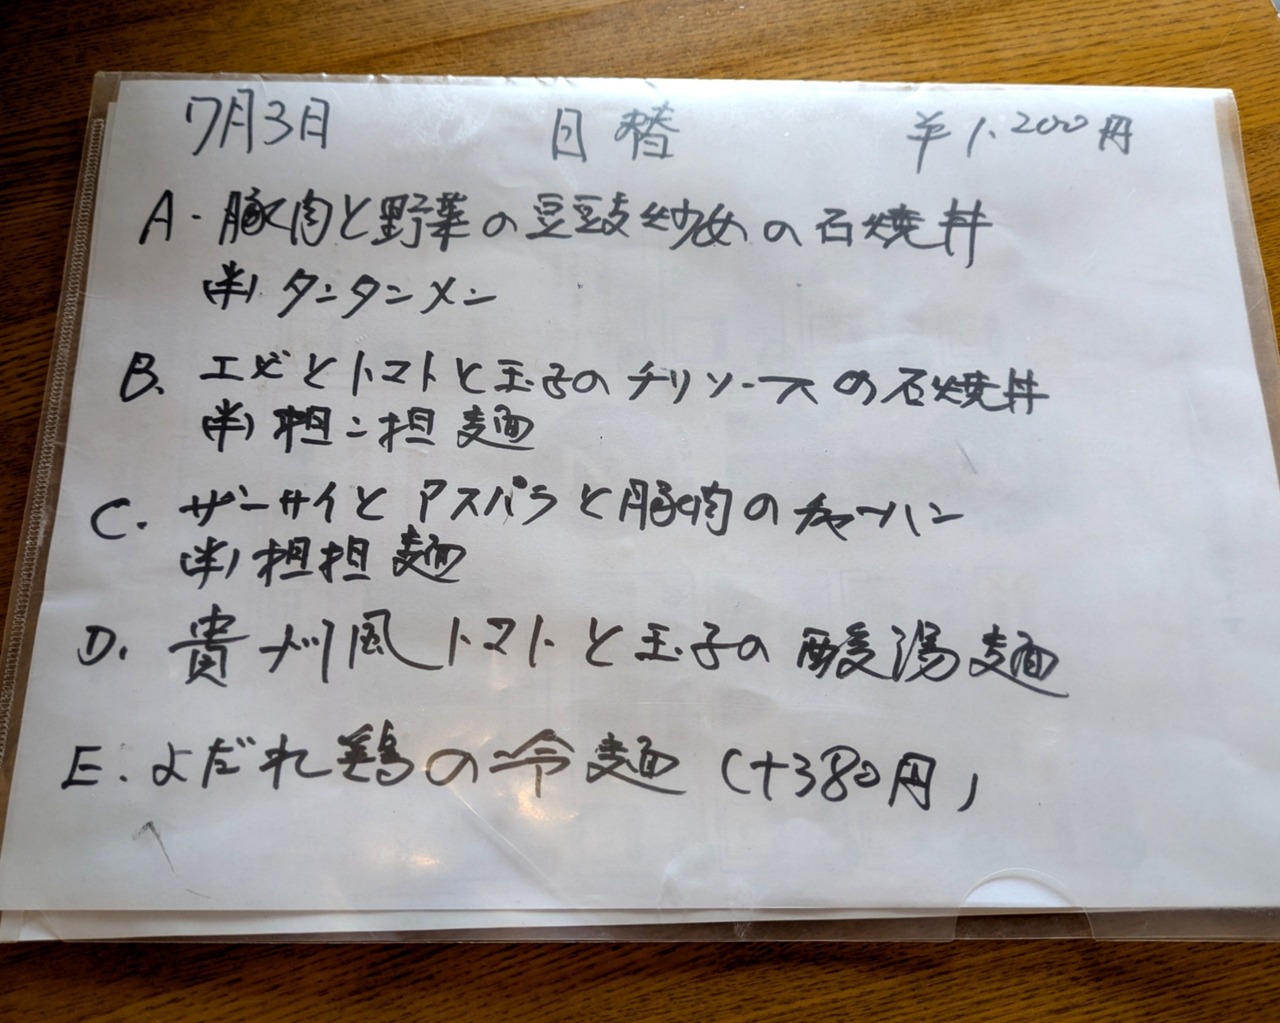 7月3日 日替 ¥1,200円
A.豚肉と野菜の豆豉炒めの石焼丼
(半)タンタンメン
B.エビとトマトと玉子のチリソースの石焼丼
(半)担々担麺
C.ザーサイとアスパラと豚肉のチャーハン
(半)担担麺
D.貴州風トマトと玉子の酸湯麺
E.よだれ鶏の冷麺(+380円)